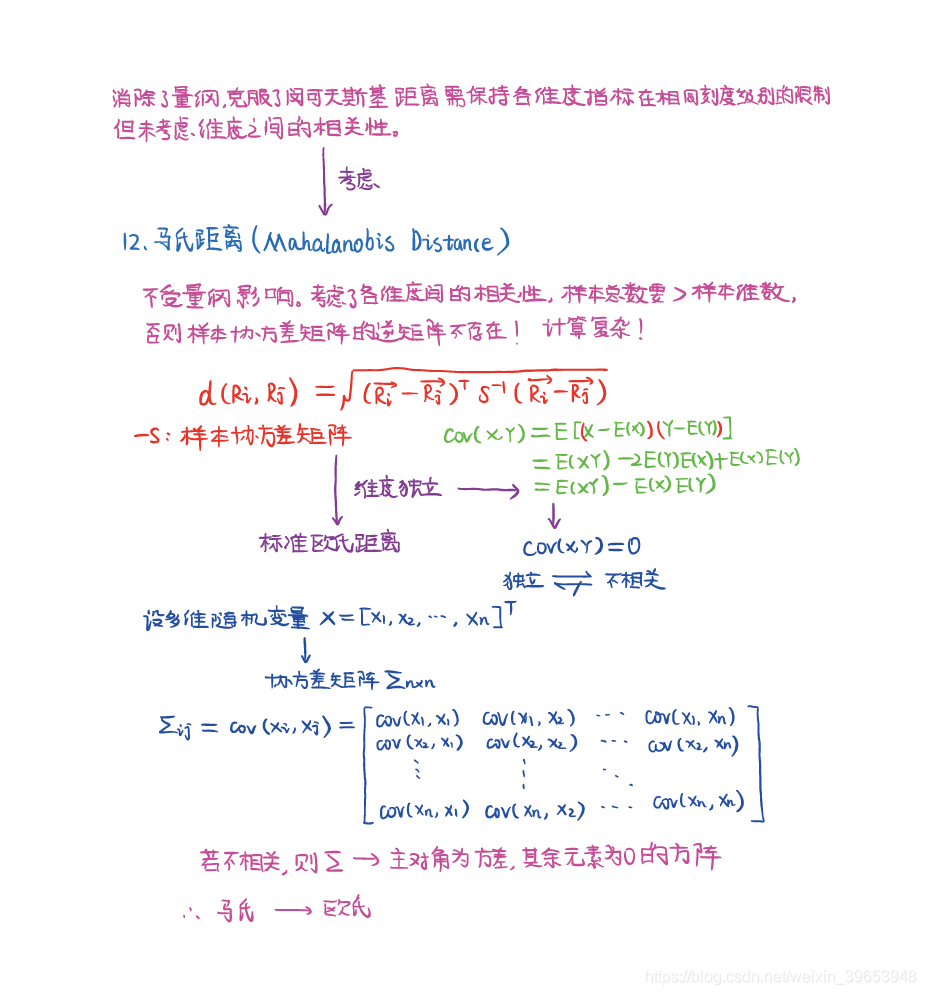 消除了量纲,克服了闵可夫斯基距离需保持各维度指标在相同刻度级别的限制
但未考虑维度之间的相关性。
考虑
12. 马氏距离(Mahalanobis Distance)
不受量纲影响。考虑了各维度间的相关性, 样本总数要 > 样本维数,
否则样本协方差矩阵的逆矩阵不存在! 计算复杂!
d(Ri, Rj) = √(Ri→ − Rj→)ᵀ S⁻¹ (Ri→ − Rj→)
-S: 样本协方差矩阵
Cov(XY) = E[(X-E(X))(Y-E(Y))]
= E(XY) - 2E(Y)E(X) + E(X)E(Y)
维度独立 → = E(XY) - E(X)E(Y)
标准欧氏距离
COV(XY)=0
独立 ⇌ 不相关
设多维随机变量 X = [X1, X2, ⋯, Xn]ᵀ
协方差矩阵 Σn×n
Σij = cov(Xi, Xj) =
cov(X1, X1) cov(X1, X2) ⋯ cov(X1, Xn)
cov(X2, X1) cov(X2, X2) ⋯ cov(X2, Xn)
⋮ ⋮ ⋱
cov(Xn, X1) cov(Xn, X2) ⋯ cov(Xn, Xn)
若不相关, 则 Σ → 主对角为方差, 其余元素为0的方阵
∴ 马氏 → 欧氏
https://blog.csdn.net/weixin_39653948